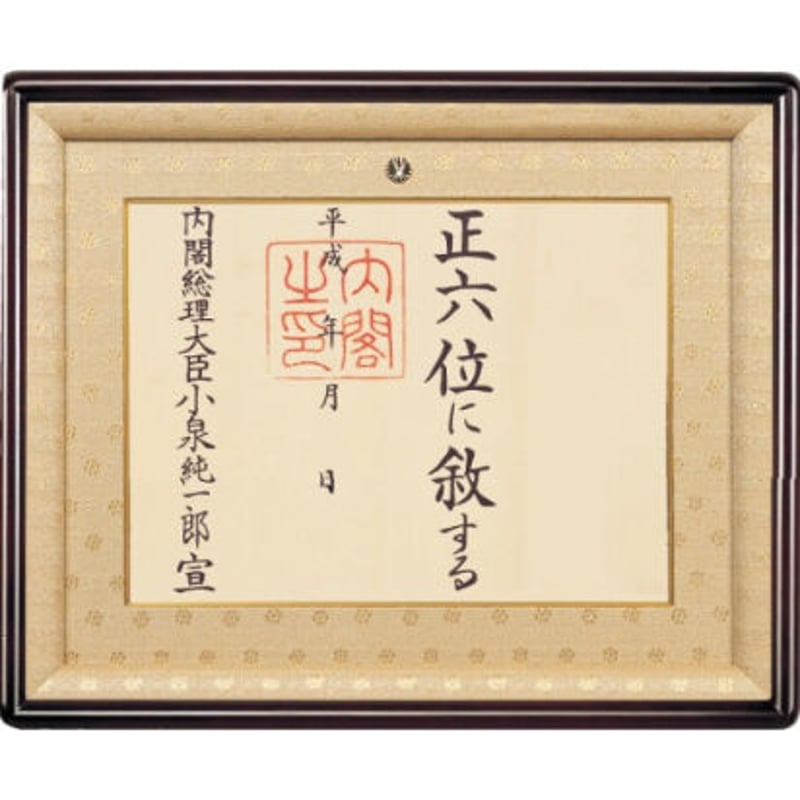 正六位に敘する
平成 年 月 日
内閣之印
内閣総理大臣小泉純一郎宣